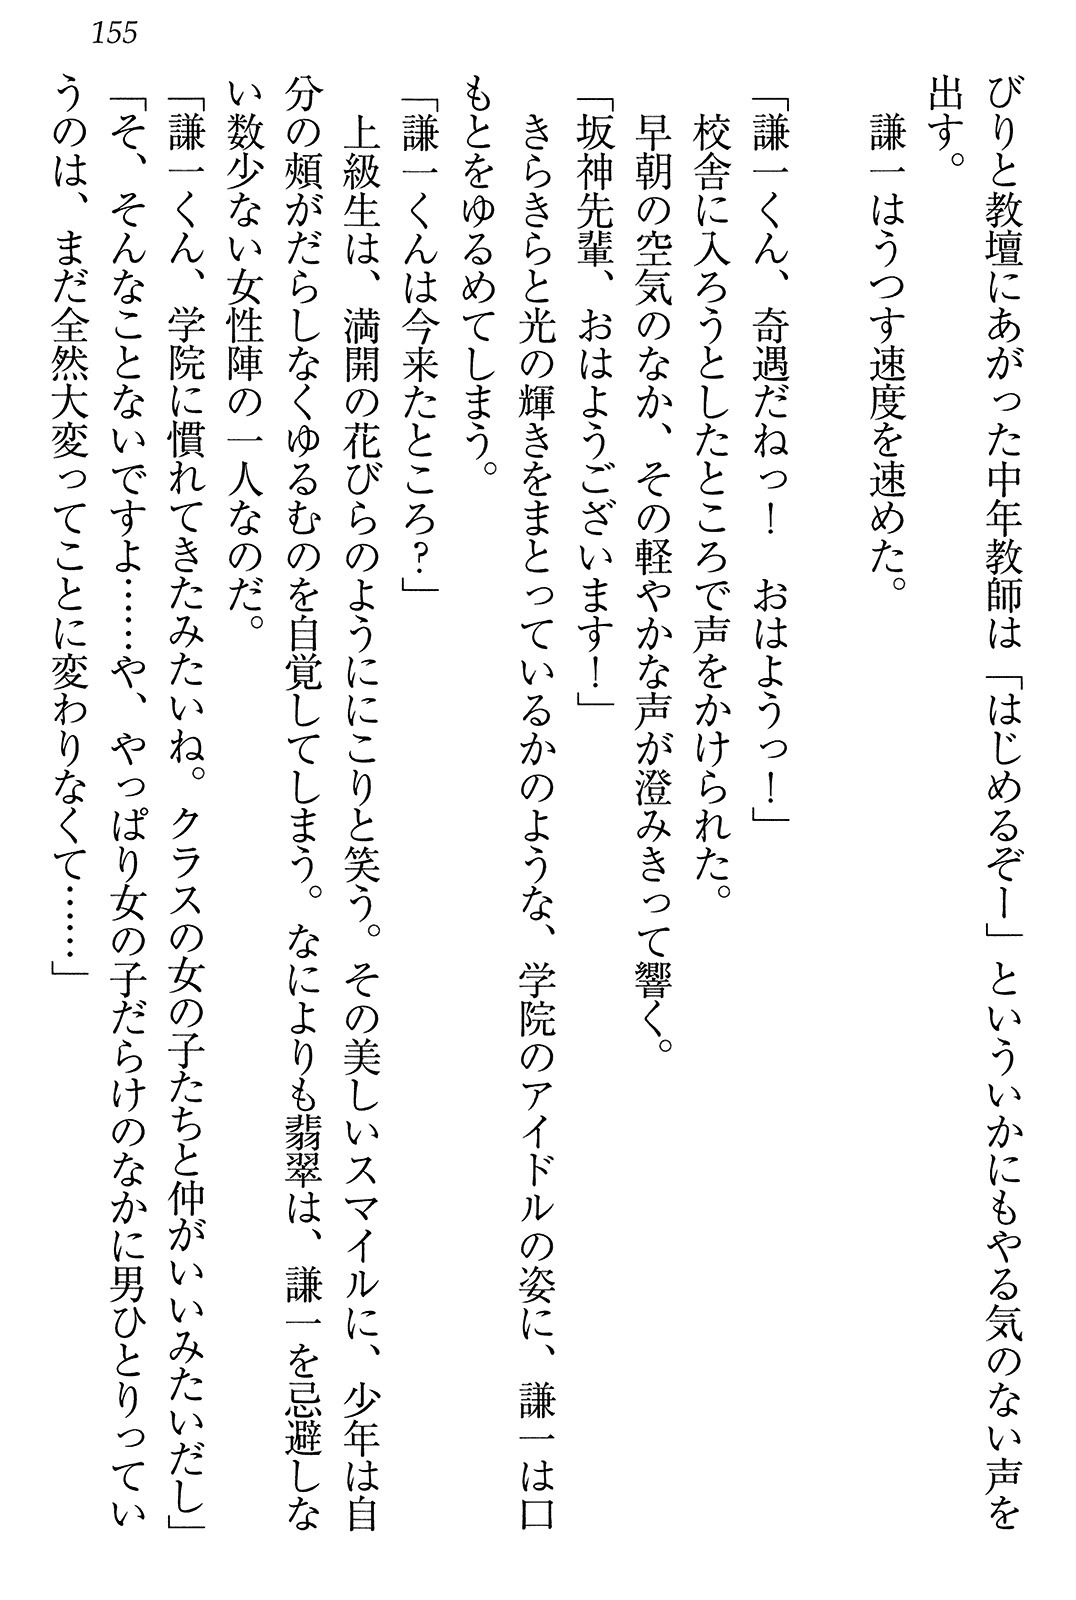 155
びりと教壇にあがった中年教師は「はじめるぞー」といういかにもやる気のない声を
出す。
謙一はうつす速度を速めた。
「謙一くん、奇遇だねっ！　おはようっ！」
校舎に入ろうとしたところで声をかけられた。
早朝の空気のなか、その軽やかな声が澄みきって響く。
「坂神先輩、おはようございます！」
きらきらと光の輝きをまとっているかのような、学院のアイドルの姿に、謙一は口
もとをゆるめてしまう。
「謙一くんは今来たところ？」
上級生は、満開の花びらのようににこりと笑う。その美しいスマイルに、少年は自
分の頰がだらしなくゆるむのを自覚してしまう。なによりも翡翠は、謙一を忌避しな
い数少ない女性陣の一人なのだ。
「謙一くん、学院に慣れてきたみたいね。クラスの女の子たちと仲がいいみたいだし」
「そ、そんなことないですよ……や、やっぱり女の子だらけのなかに男ひとりってい
うのは、まだ全然大変ってことに変わりなくて……」